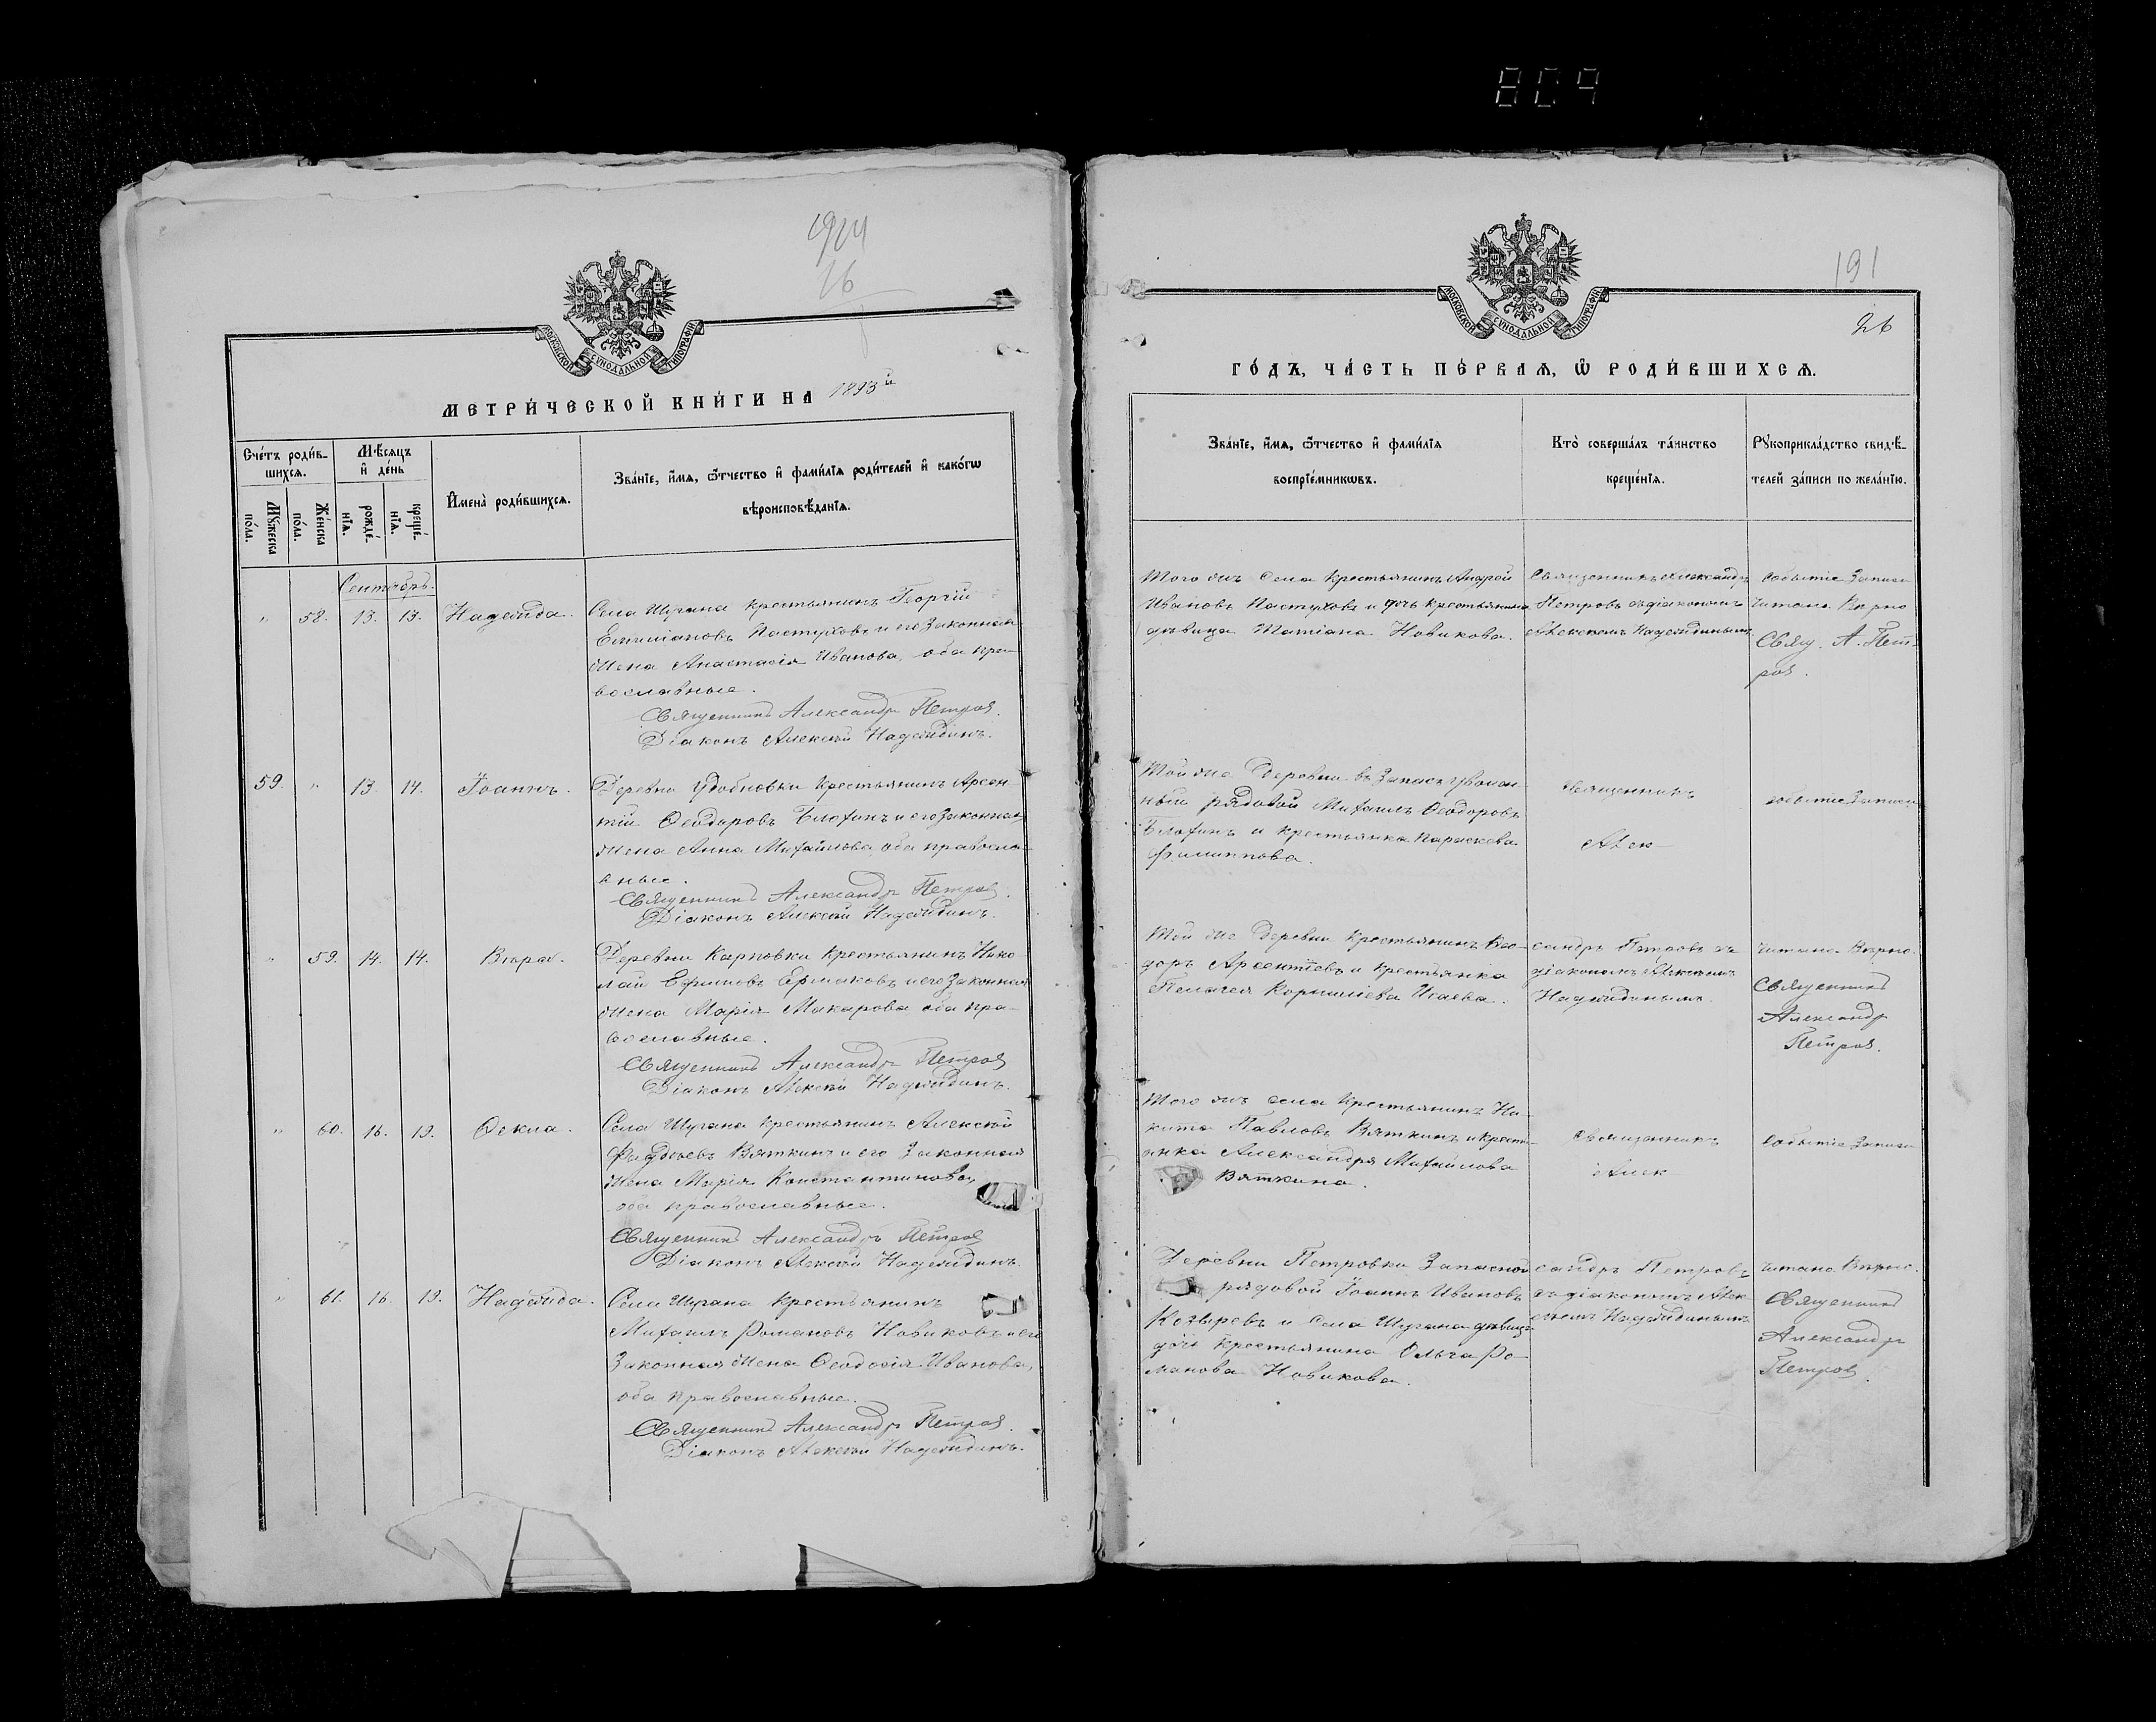 809
1924
26
МОСКОВСКОЙ СУНОДАЛЬНОЙ ТИПОГРАФІИ
МЕТРИ́ЧЕСКОЙ КНИ́ГИ НА 1893й
Сче́тъ роди́в-
шихсѧ.
Мꙋ́жеска
по́ла.
Же́нска
по́ла.
Мѣ́сѧцъ
и҆ де́нь
рожде́-
нїѧ.
креще́-
нїѧ.
И҆мена̀ роди́вшихсѧ.
Зва́нїе, и҆́мѧ, ѻ҆́тчество и҆ фами́лїѧ роди́телей и҆ како́гѡ
вѣроисповѣ́данїѧ.
Сентябрь.
" 58. 13. 13. Надежда.
Села Шугана крестьянинъ Георгій
Емиліановъ Пастуховъ и его законная
жена Анастасія Иванова, оба пра-
вославные.
Священникъ Александръ Петровъ.
Діаконъ Алексѣй Надеждинъ.
59. " 13. 14. Іоаннъ.
Деревни Удобновки крестьянинъ Арсен-
тій Ѳеодоровъ Блохинъ и его законная
жена Анна Михайлова, оба правосла-
вные.
Священникъ Александръ Петровъ.
Діаконъ Алексѣй Надеждинъ.
" 59. 14. 14.
Деревни Карповки крестьянинъ Нико-
лай Ефимовъ Ермаковъ и его законная
жена Марія Макарова оба пра-
вославные.
Священникъ Александръ Петровъ
Діаконъ Алексѣй Надеждинъ.
" 60. 16. 19. Ѳекла.
Села Шугана крестьянинъ Алексѣй
Фадѣевъ Вяткинъ и его законная
жена Марія Константинова,
оба православные.
Священникъ Александръ Петровъ
Діаконъ Алексѣй Надеждинъ.
" 61. 16. 19. Надежда.
Села Шугана крестьянинъ
Михаилъ Романовъ Новиковъ и его
законная жена Ѳеодосія Иванова,
оба православные.
Священникъ Александръ Петровъ.
Діаконъ Алексѣй Надеждинъ.
191
26
МОСКОВСКОЙ СУНОДАЛЬНОЙ ТИПОГРАФІИ
ГО́ДЪ, ЧА́СТЬ ПЕ́РВАѦ, Ѡ҆ РОДИ́ВШИХСѦ.
Зва́нїе, и҆́мѧ, ѻ҆́тчество и҆ фами́лїѧ
воспрїе́мникѡвъ.
Кто̀ соверша́лъ та́инство
креще́нїѧ.
Рꙋкоприкла́дство свидѣ́-
телей за́писи по жела́нїю.
Того жъ села крестьянинъ Андрей
Ивановъ Пастуховъ и дочь крестьянина
дѣвица Татіана Новикова.
Священникъ Александръ
Петровъ съ діакономъ
Алексѣемъ Надеждинымъ.
Событіе записи
читано. Вѣрно
Свящ. А. Пет-
ровъ.
Той же деревни въ запасъ уволен-
ный рядовой Михаилъ Ѳеодоровъ
Блохинъ и крестьянка Параскева
Филиппова.
Священникъ
Алек-
событіе записи
Той же деревни крестьянинъ Ѳео-
доръ Арсентіевъ и крестьянка
Пелагея Корниліева Исаева.
сандръ Петровъ съ
діакономъ Алексѣемъ
Надеждинымъ.
читано Вѣрно.
Священникъ
Александръ
Петровъ.
Того жъ села крестьянинъ Ни-
кита Павловъ Вяткинъ и кресть-
янка Александра Михайлова
Вяткина.
Священникъ
Алек-
событіе записи
Деревни Петровки запасной
рядовой Іоаннъ Ивановъ
Козыревъ и села Шугана дѣвица
дочь крестьянина Ольга Ро-
манова Новикова.
сандръ Петровъ
съ діакономъ Алек-
сѣемъ Надеждинымъ
читано Вѣрно.
Священникъ
Александръ
Петровъ.